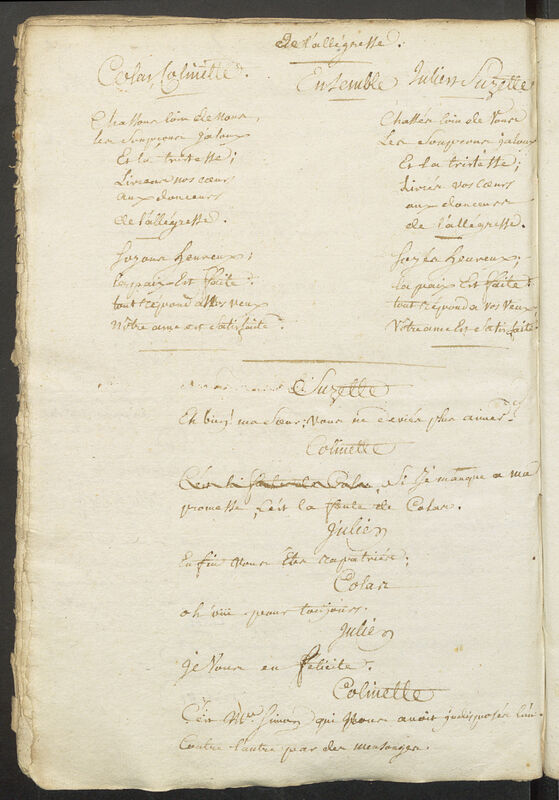 de l'allégresse.
Colas, Colinette.
Ensemble
Julien Suzette
Chassons loin de nous,
les Soupçons jaloux
Et la tristesse;
Livrons nos cœurs
aux douceurs
de l'allégresse.
Soyons heureux;
la paix Est faite.
tout répond a Nos vœux
Nôtre ame est satisfaite.
Chassés loin de Vous
Les Soupçons jaloux
Et la tristesse;
Livrés vos cœurs
aux douceurs
de l'allégresse.
Soyés heureux;
la paix Est faite.
tout répond a vos veux,
Votre ame Est satisfaite.
Suzette
Eh bien! ma Sœur; Vous ne deviés plus aimer?
Colinette
Si Je manque a ma
promesse, C'est la faute de Colas.
Julien
Enfin Vous Êtes rapatriés;
Colas
oh oui! pour toujours.
Julien
Je Vous en felicite.
Colinette
C'est Mr Simon qui Nous avoit indisposés l'un
Contre l'autre par des mensonges.